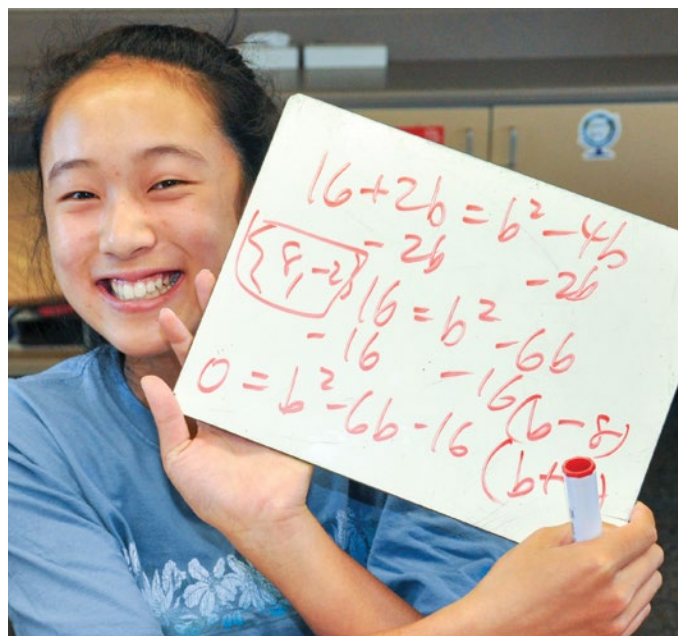 16+2b = b² -4b
-2b -2b
{8,-2} 16 = b² -6b
-16 -16
0 = b² -6b -16 (b-8)
(b+